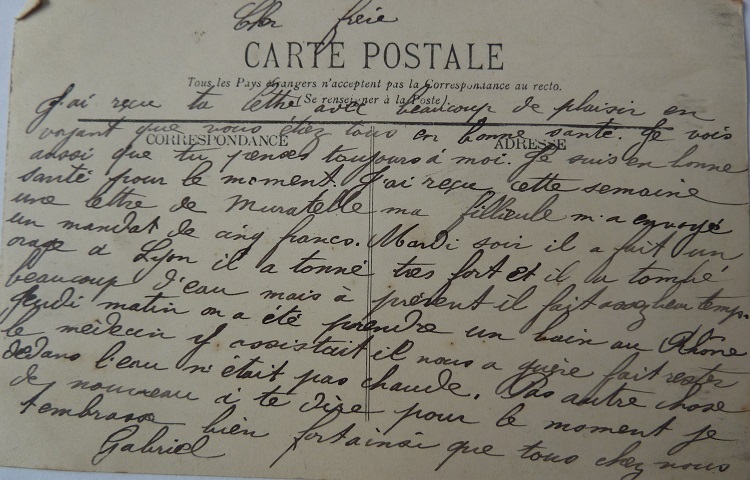 Cher frère
CARTE POSTALE
Tous les Pays étrangers n'acceptent pas la Correspondance au recto.
(Se renseigner à la Poste)
J'ai reçu ta lettre avec beaucoup de plaisir en
voyant que vous étez tous en bonne santé. Je vois
CORRESPONDANCE
ADRESSE
aussi que tu penses toujours à moi. Je suis en bonne
santé pour le moment. J'ai reçu cette semaine
une lettre de Muratelle ma fillieule m'a envoyé
un mandat de cinq francs. Mardi soir il a fait un
orage à Lyon il a tonné très fort et il a tombé
beaucoup d'eau mais à présent il fait assez beau temps.
Jeudi matin on a été prendre un bain au Rhône
le médecin y assistait il nous a guère fait rester
dedans l'eau n'était pas chaude. Pas autre chose
de nouveau à te dire pour le moment je
t'embrasse bien fort ainsi que tous chez nous
Gabriel